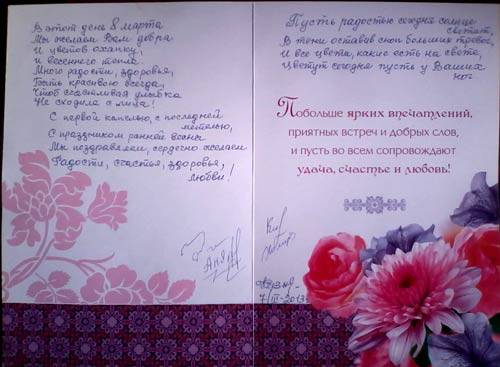 В этот день 8 марта
Мы желаем Вам добра
И цветов охапку,
и весеннего тепла.
Много радости, здоровья,
Быть красивою всегда,
Чтоб счастливая улыбка
Не сходила с лица!
С первой капелью, с последней
метелью,
С праздником ранней весны
Мы поздравляем, сердечно желаем
Радости, счастья, здоровья,
любви!
Пусть радостью сегодня солнце
светит,
В тени оставив сноп больших тревог,
И все цветы, какие есть на свете,
Цветут сегодня пусть у Ваших
ног.
Побольше ярких впечатлений,
приятных встреч и добрых слов,
и пусть во всем сопровождают
удача, счастье и любовь!